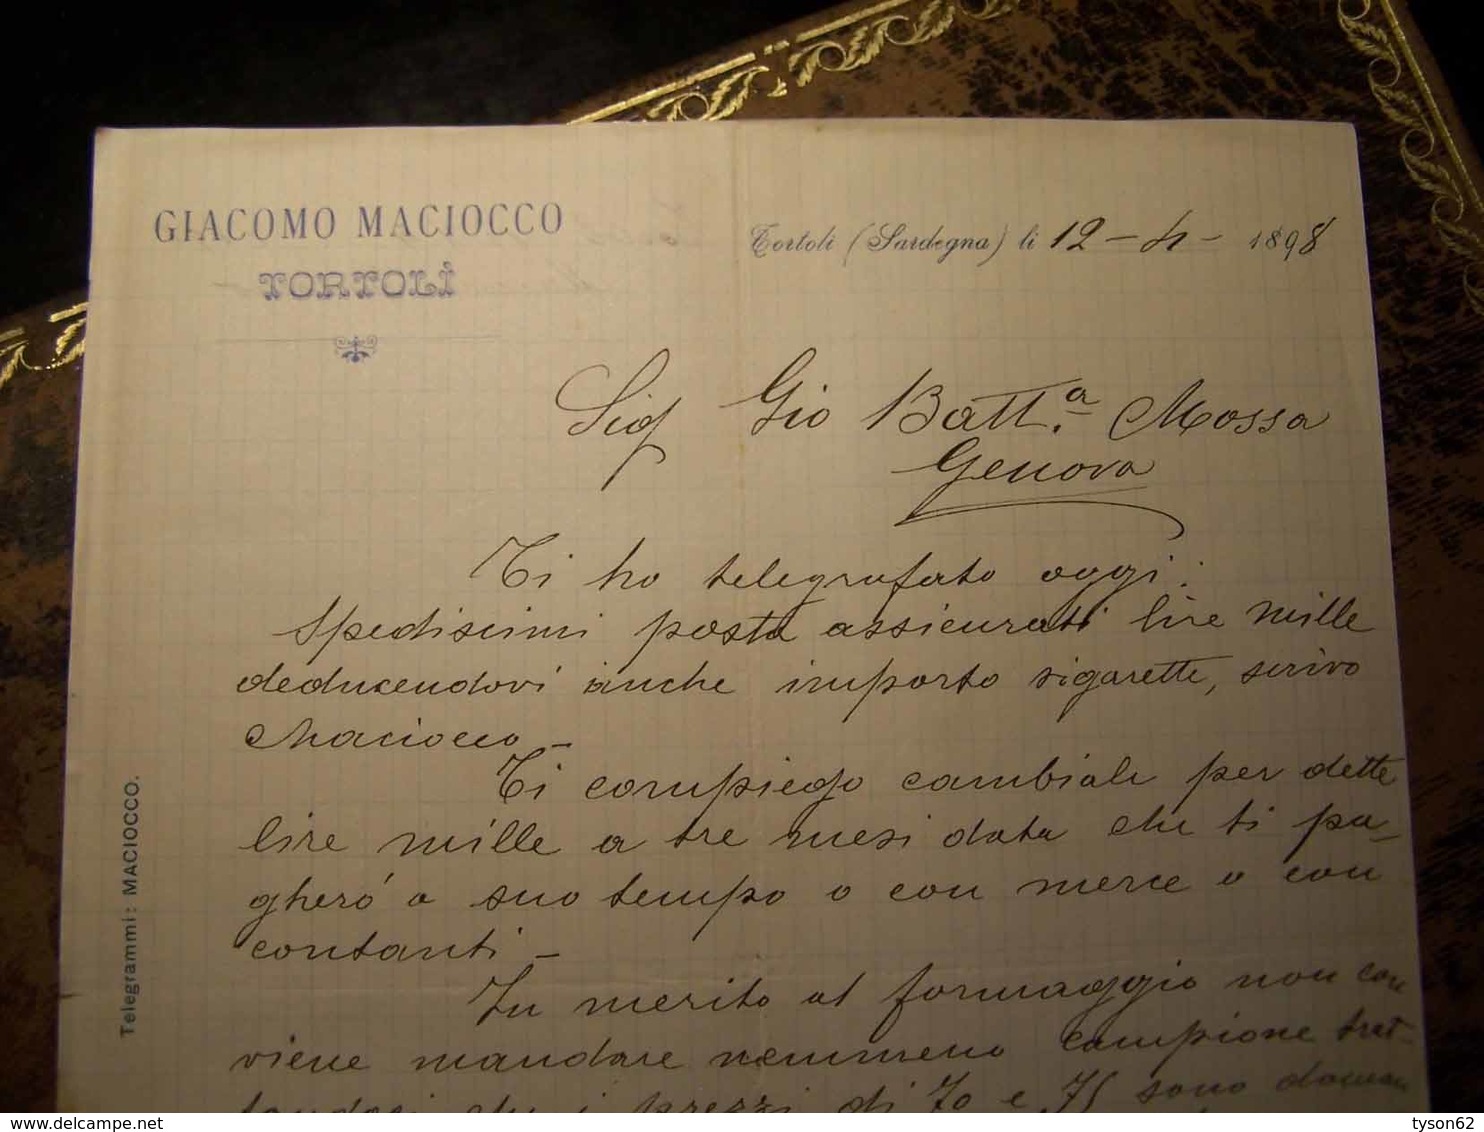 GIACOMO MACIOCCO
TORTOLÌ
Tortolì (Sardegna) li 12-4-1898
Sig Gio Batt.a Mossa
Genova
Ti ho telegrafato oggi:
Spediscimi posta assicurati lire mille
deducendovi anche importo sigarette, scrivo
Maciocco -
Ti compiego cambiale per dette
lire mille a tre mesi data che ti pa-
gheró a suo tempo o con merce o con
contanti -
In merito al formaggio non con
viene mandare nemmeno campione trat-
tandosi che i prezzi di 70 e 75 sono
Telegrammi: MACIOCCO.
delcampe.net
tyson62